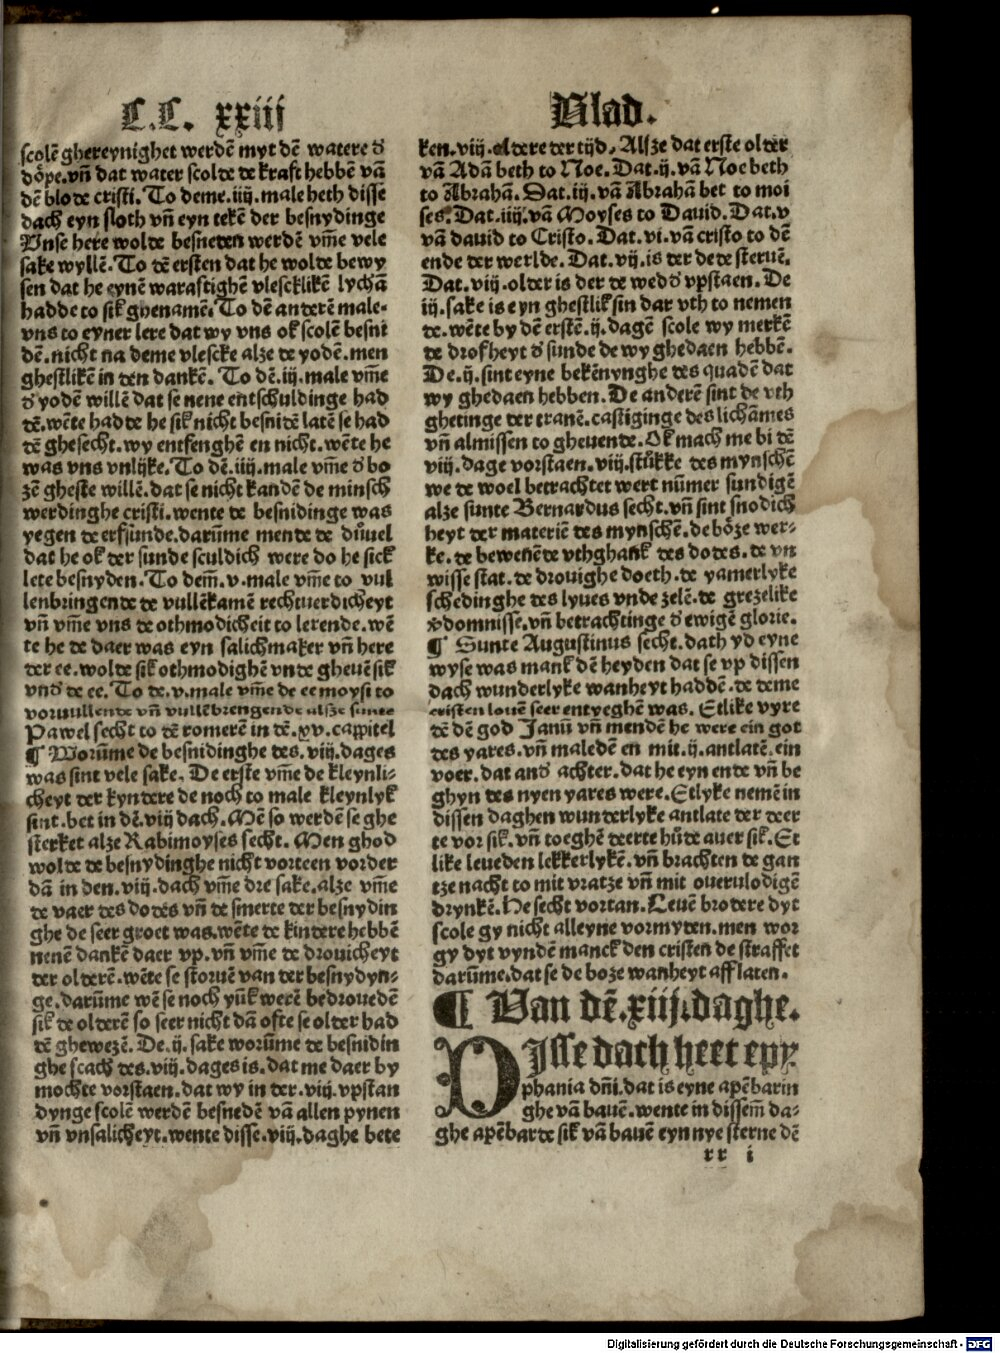 C.C. xxiij Blad.
scolē ghereynighet werdē myt dē watere đ
döpe. vn̄ dat water scolde de kraft hebbē vā
dē blode cristi. To deme .iiij. male heth disse
dach eyn sloth vn̄ eyn tekē der besnydinge
Vnse here wolde besneten werdē vm̄e vele
sake wyllē. To dē ersten dat he wolde bewy
sen dat he eynē waraftighē vlescklikē lychā
hadde to sik ghenamē. To dē anderē male.
vns to eyner lere dat wy vns ok scolē besni
dē. nicht na deme vlescke alze de yodē. men
ghestlikē in den dankē. To dē .iij. male vm̄e
đ yodē willē dat se nene entschuldinge had
dē. wēte hadde he sik nicht besnidē latē se had
dē ghesecht. wy entfenghē en nicht. wēte he
was vns vnlijke. To dē .iiij. male vm̄e đ bo
zē gheste willē. dat se nicht kandē de minsch
werdinghe cristi. wente de besnidinge was
yegen de erfsunde. darūme mende de dűuel
dat he ok der sunde sculdich were do he sick
lete besnyden. To dem̄ .v. male vm̄e to vul
lenbringende de vullēkamē rechtuerdicheyt
vn̄ vm̄e vns de othmodicheit to lerende. wē
te he de daer was eyn salichmaker vn̄ here
der ee. wolde sik othmodighē vnde gheuē sik
vnđ de ee. To de .v. male vm̄e de ee moysi to
voruullende vn̄ vullēbrengende alsze sunte
Pawel secht to dē romerē in dē .xv. cappitel
¶ Worūme de besnidinghe des .viij. dages
was sint vele sake. De erste vm̄e de kleynli-
cheyt der kyndere de noch to male kleynlyk
sint. bet in dē .viij dach. Mē so werdē se ghe
sterket alze Rabimoyses secht. Men ghod
wolde de besnydinghe nicht vorteen vorder
dā in den .viij. dach vm̄e dre sake. alze vm̄e
de vaer des dodes vn̄ de smerte der besnydin
ghe de seer groet was. wēte de kindere hebbē
nenē dankē daer vp. vn̄ vm̄e de drouicheyt
der olderē. wēte se storuē van der besnydyn-
ge. darūme wē se noch yűk werē bedrouedē
sik de olderē so seer nicht dā ofte se older had
dē ghewezē. De .ij. sake worūme de besnidin
ghe scach des .viij. dages is. dat me daer by
mochte vorstaen. dat wy in der .viij. vpstan
dynge scolē werdē besnedē vā allen pynen
vn̄ vnsalicheyt. wente disse .viij. daghe bete
ken .viij. oldere der tijd. Alsze dat erste older
vā Adā beth to Noe. Dat .ij. vā Noe beth
to Abrahā. Dat .iij. vā Abrahā bet to moi
ses. Dat .iiij. vā Moyses to Dauid. Dat .v
vā dauid to Cristo. Dat .vi. vā cristo to dē
ende der werlde. Dat .vij. is der de de steruē.
Dat .viij. older is der de wedđ vpstaen. De
iij. sake is eyn ghestlik sin dar vth to nemen
de. wēte by dē erstē .ij. dagē scole wy merkē
de drofheyt đ sunde de wy ghedaen hebbē.
De .ij. sint eyne bekēnynghe des quadē dat
wy ghedaen hebben. De anderē sint de vth
ghetinge der tranē. castiginge des lichāmes
vn̄ almissen to gheuende. Ok mach me bi dē
viij. dage vorstaen .viij. stůkke des mynschē
we de woel betrachtet wert nům̄er sundigē
alze sunte Bernardus secht. vn̄ sint snodich
heyt der materiē des mynschē. de böze wer-
ke. de bewenēde vthghank des dodes. de vn
wisse stat. de drouighe doeth. de yamerlyke
schedinghe des lyues vnde zelē. de grezelike
vdomnissē. vn̄ betrachtinge đ ewigē glorie.
¶ Sunte Augustinus secht. dath yd eyne
wyse was mank dē heyden dat se vp dissen
dach wunderlyke wanheyt haddē. de deme
cristen louē seer entyeghē was. Etlike vyre
dē dē god Janū vn̄ mendē he were ein got
des yares. vn̄ maledē en mit .ij. antlatē. ein
voer. dat anđ achter. dat he eyn ende vn̄ be
ghyn des nyen yares were. Etlyke nemē in
dissen daghen wunderlyke antlate der deer
te vor sik. vn̄ toeghē deerte hůde auer sik. Et
like leueden lekkerlykē. vn̄ brachten de gan
tze nacht to mit vratze vn̄ mit ouerulodigē
drynkē. He secht vortan. Leuē brodere dyt
scole gy nicht alleyne vormyden. men wor
gy dyt vyndē manck den cristen de straffet
darūme. dat se de boze wanheyt afflaten.
¶ Van dē .xiij. daghe.
DJsse dach heet epy
phania dn̄i. dat is eyne apēbarin
ghe vā bauē. wente in dissem̄ da-
ghe apēbarde sik vā bauē eyn nye sterne dē
rr i
Digitalisierung gefördert durch die Deutsche Forschungsgemeinschaft - DFG